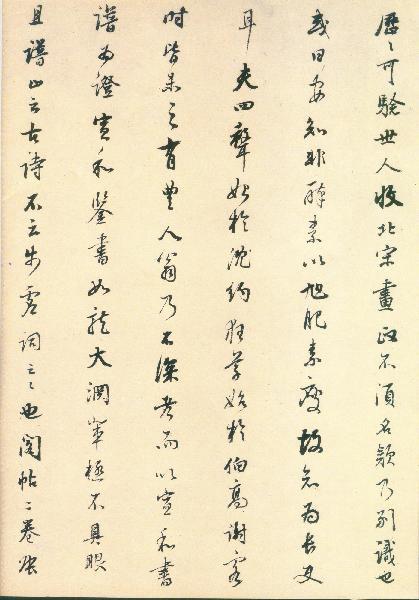 歷歷可驗世人收北宋畫政不須名款乃別識也
或曰安知非醉素以旭肥素瘦故知為長史
耳夫四聲始於沈約狂草始於伯高謝客
時皆未之有豐人翁乃不深考而以宣和書
譜為證宣和鑒書如龍大淵輩極不具眼
且譜止云古詩不云步虛詞云云也閣帖二卷張